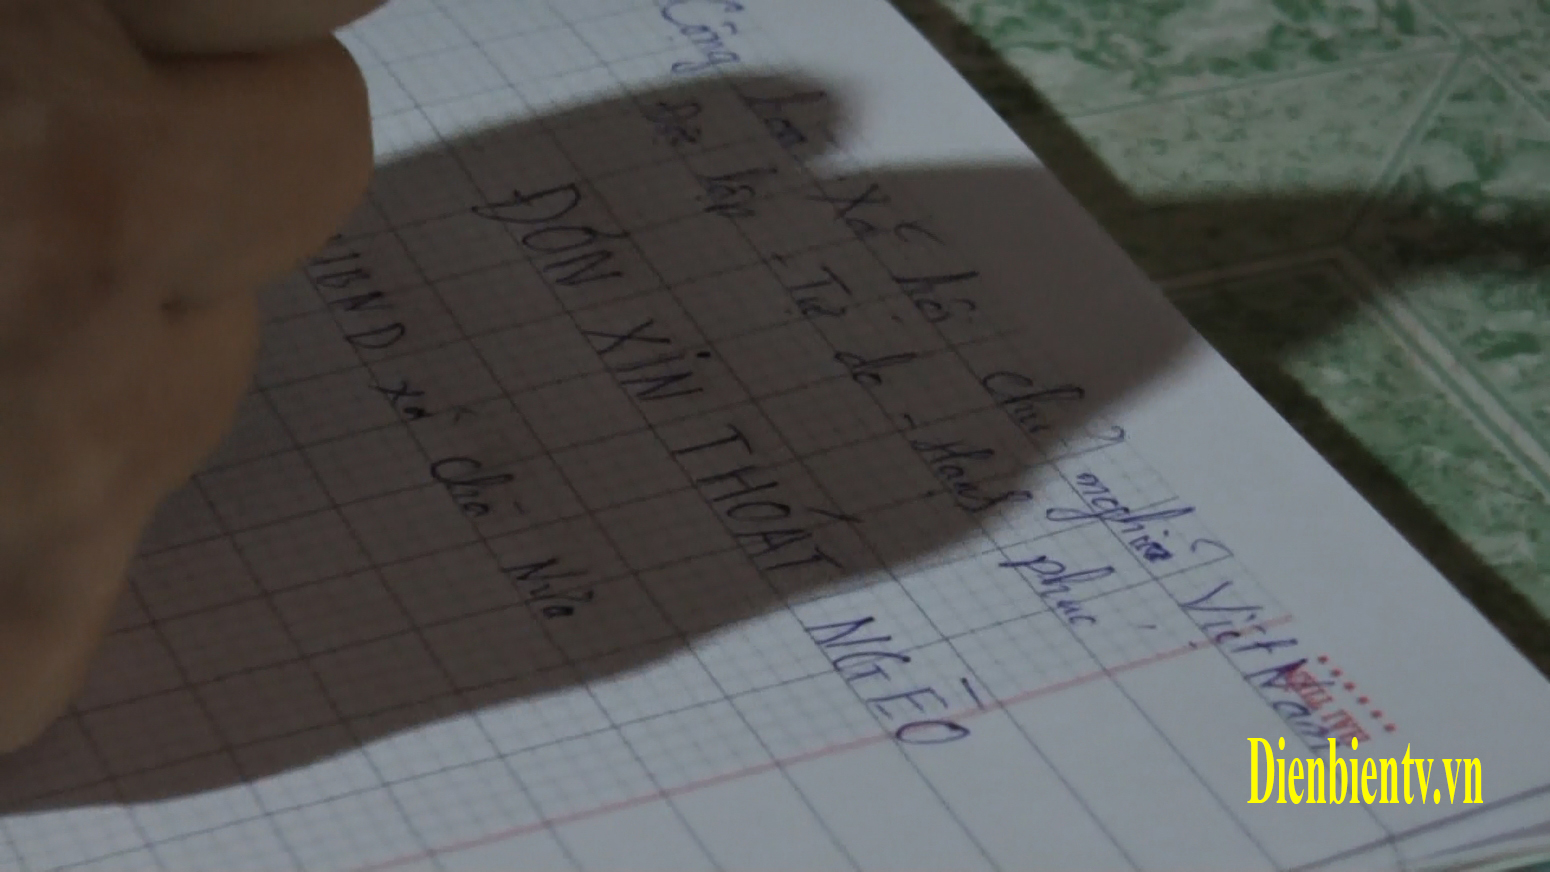 Cộng hoà Xã hội chủ nghĩa Việt Nam
Độc lập - Tự do - Hạnh phúc
ĐƠN XIN THOÁT NGÈO
UBND xã Chà Nưa
HẢI TIẾN
Dienbientv.vn